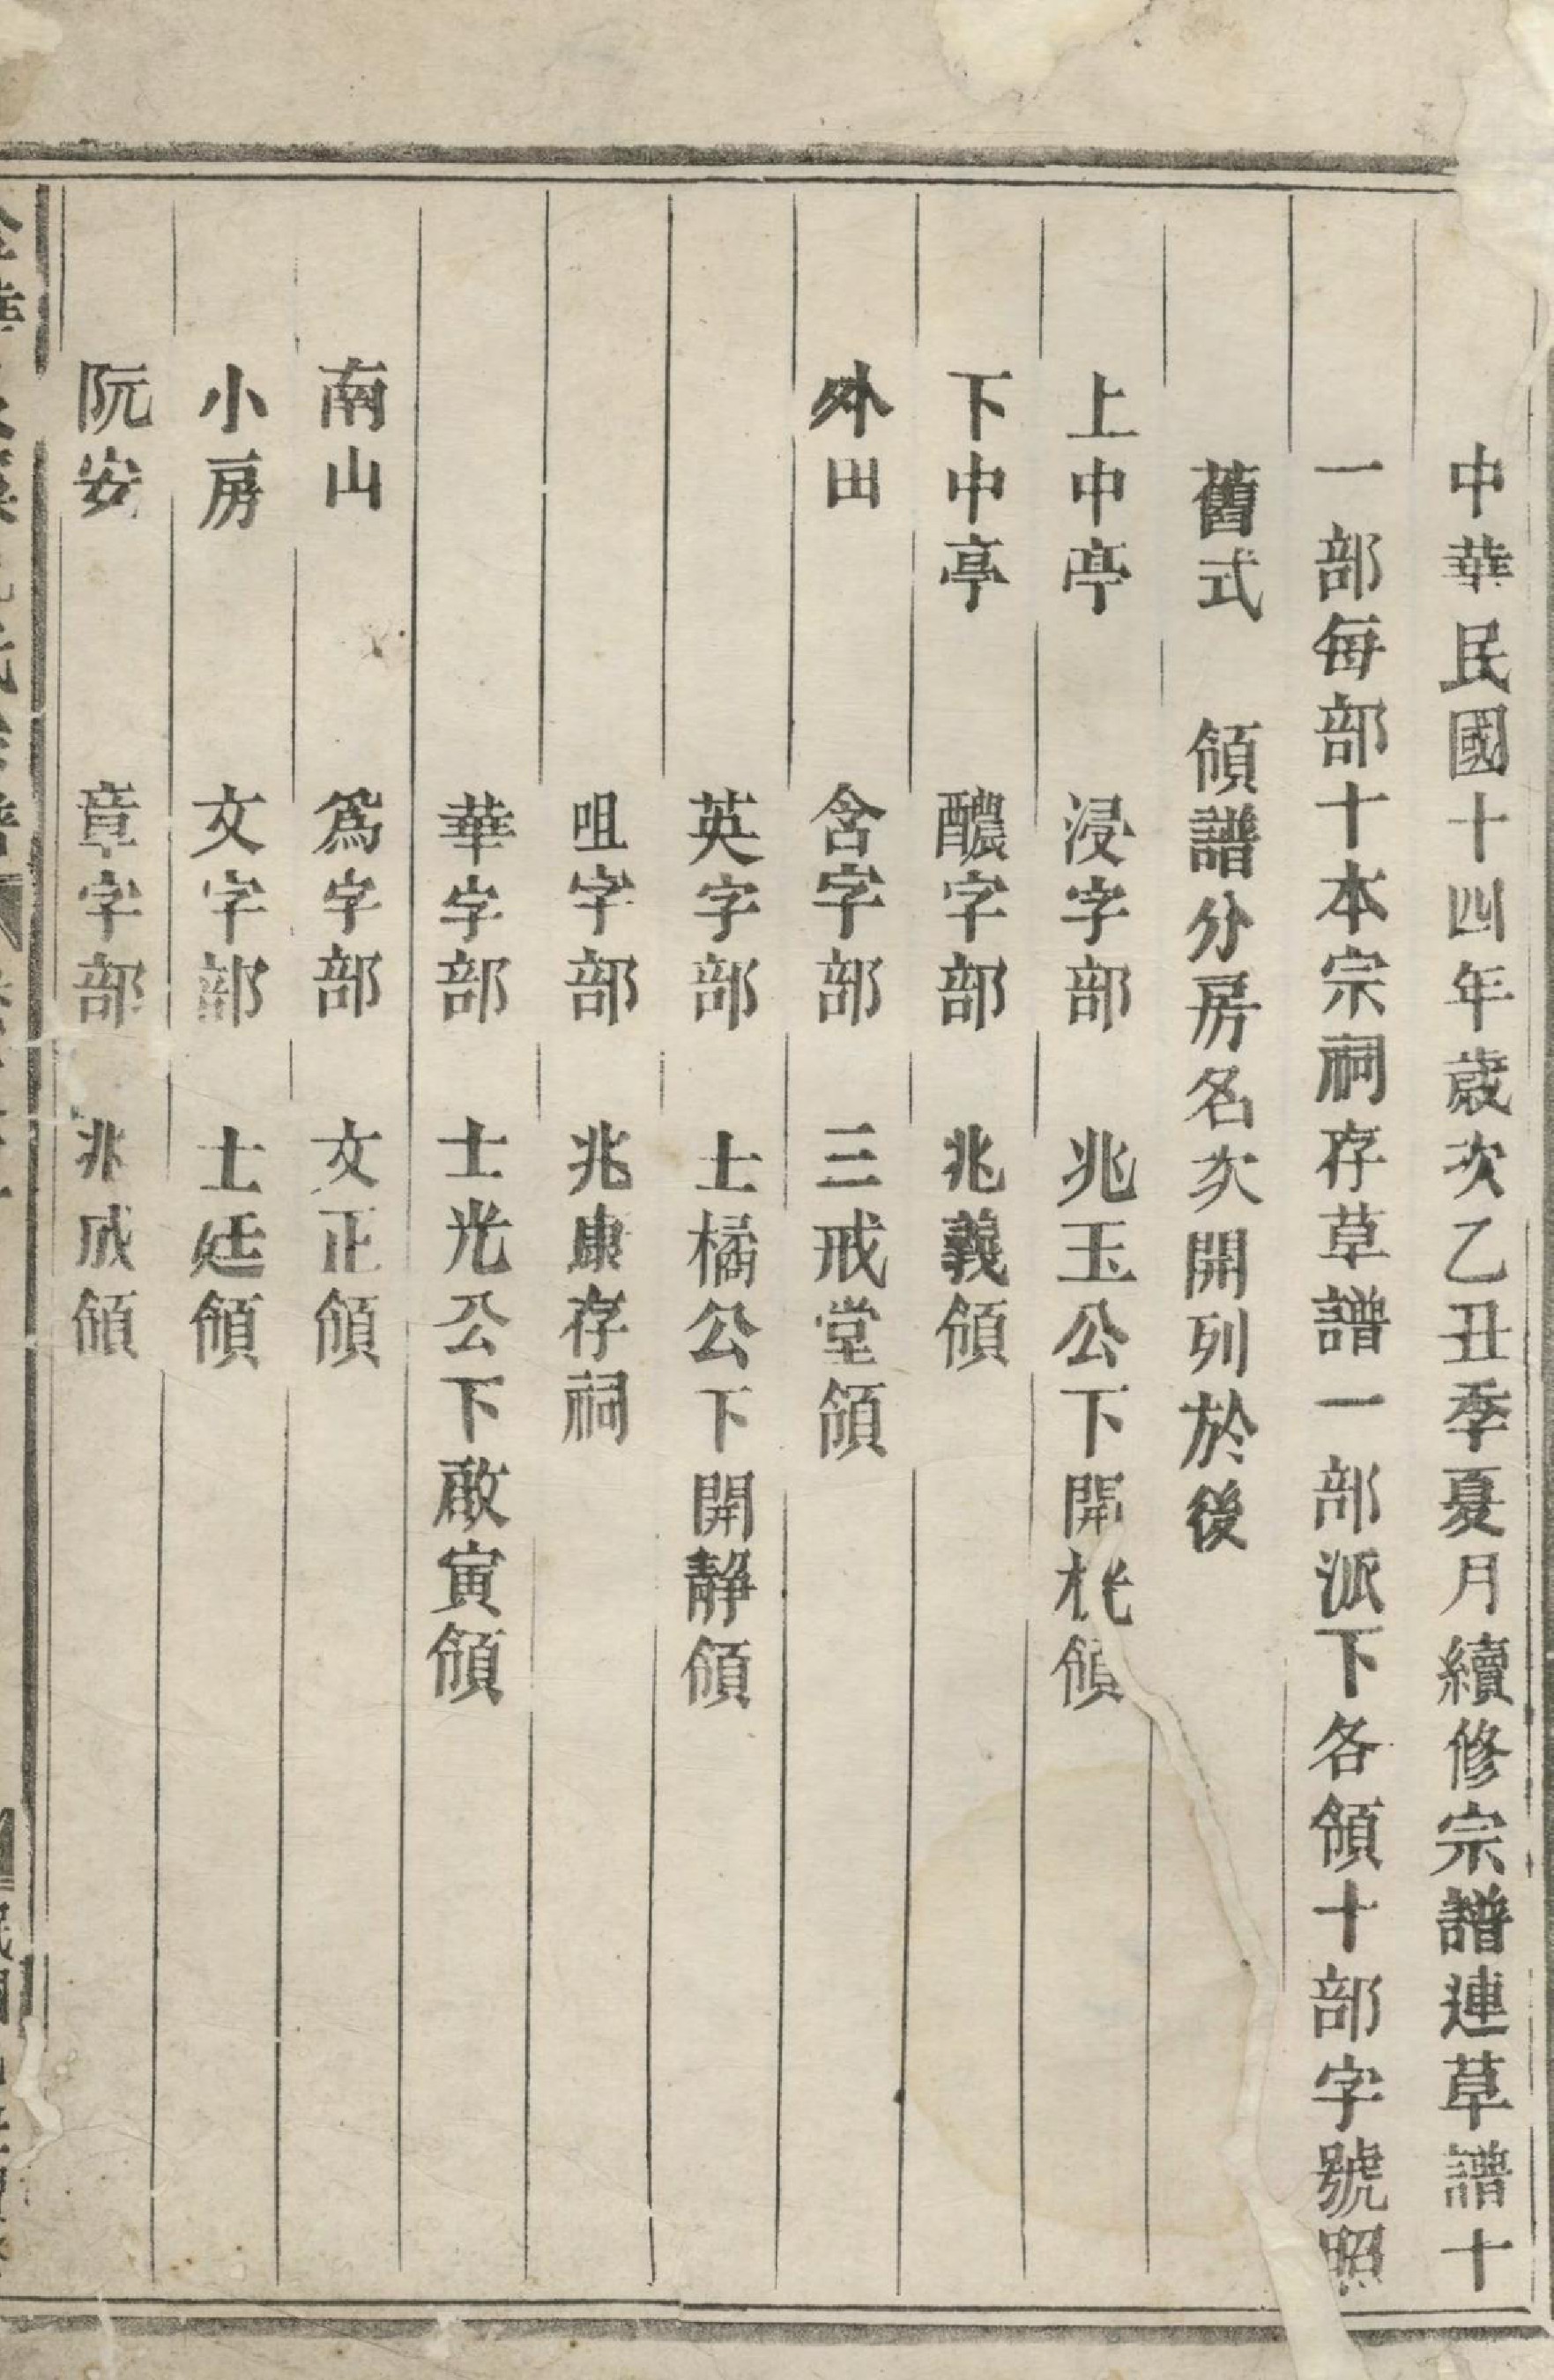 中華民國十四年歲次乙丑季夏月續修宗譜連草譜十
一部每部十本宗祠存草譜一部派下各領十部字號照
舊式　領譜分房名次開列於後
上中亭　浸字部　兆玉公下開桄領
下中亭　醲字部　兆義領
外田　含字部　三戒堂領
英字部　士橘公下開靜領
咀字部　兆康存祠
華字部　士光公下敢寅領
南山　為字部　文正領
小房　文字部　士廷領
阮安　章字部　兆成領